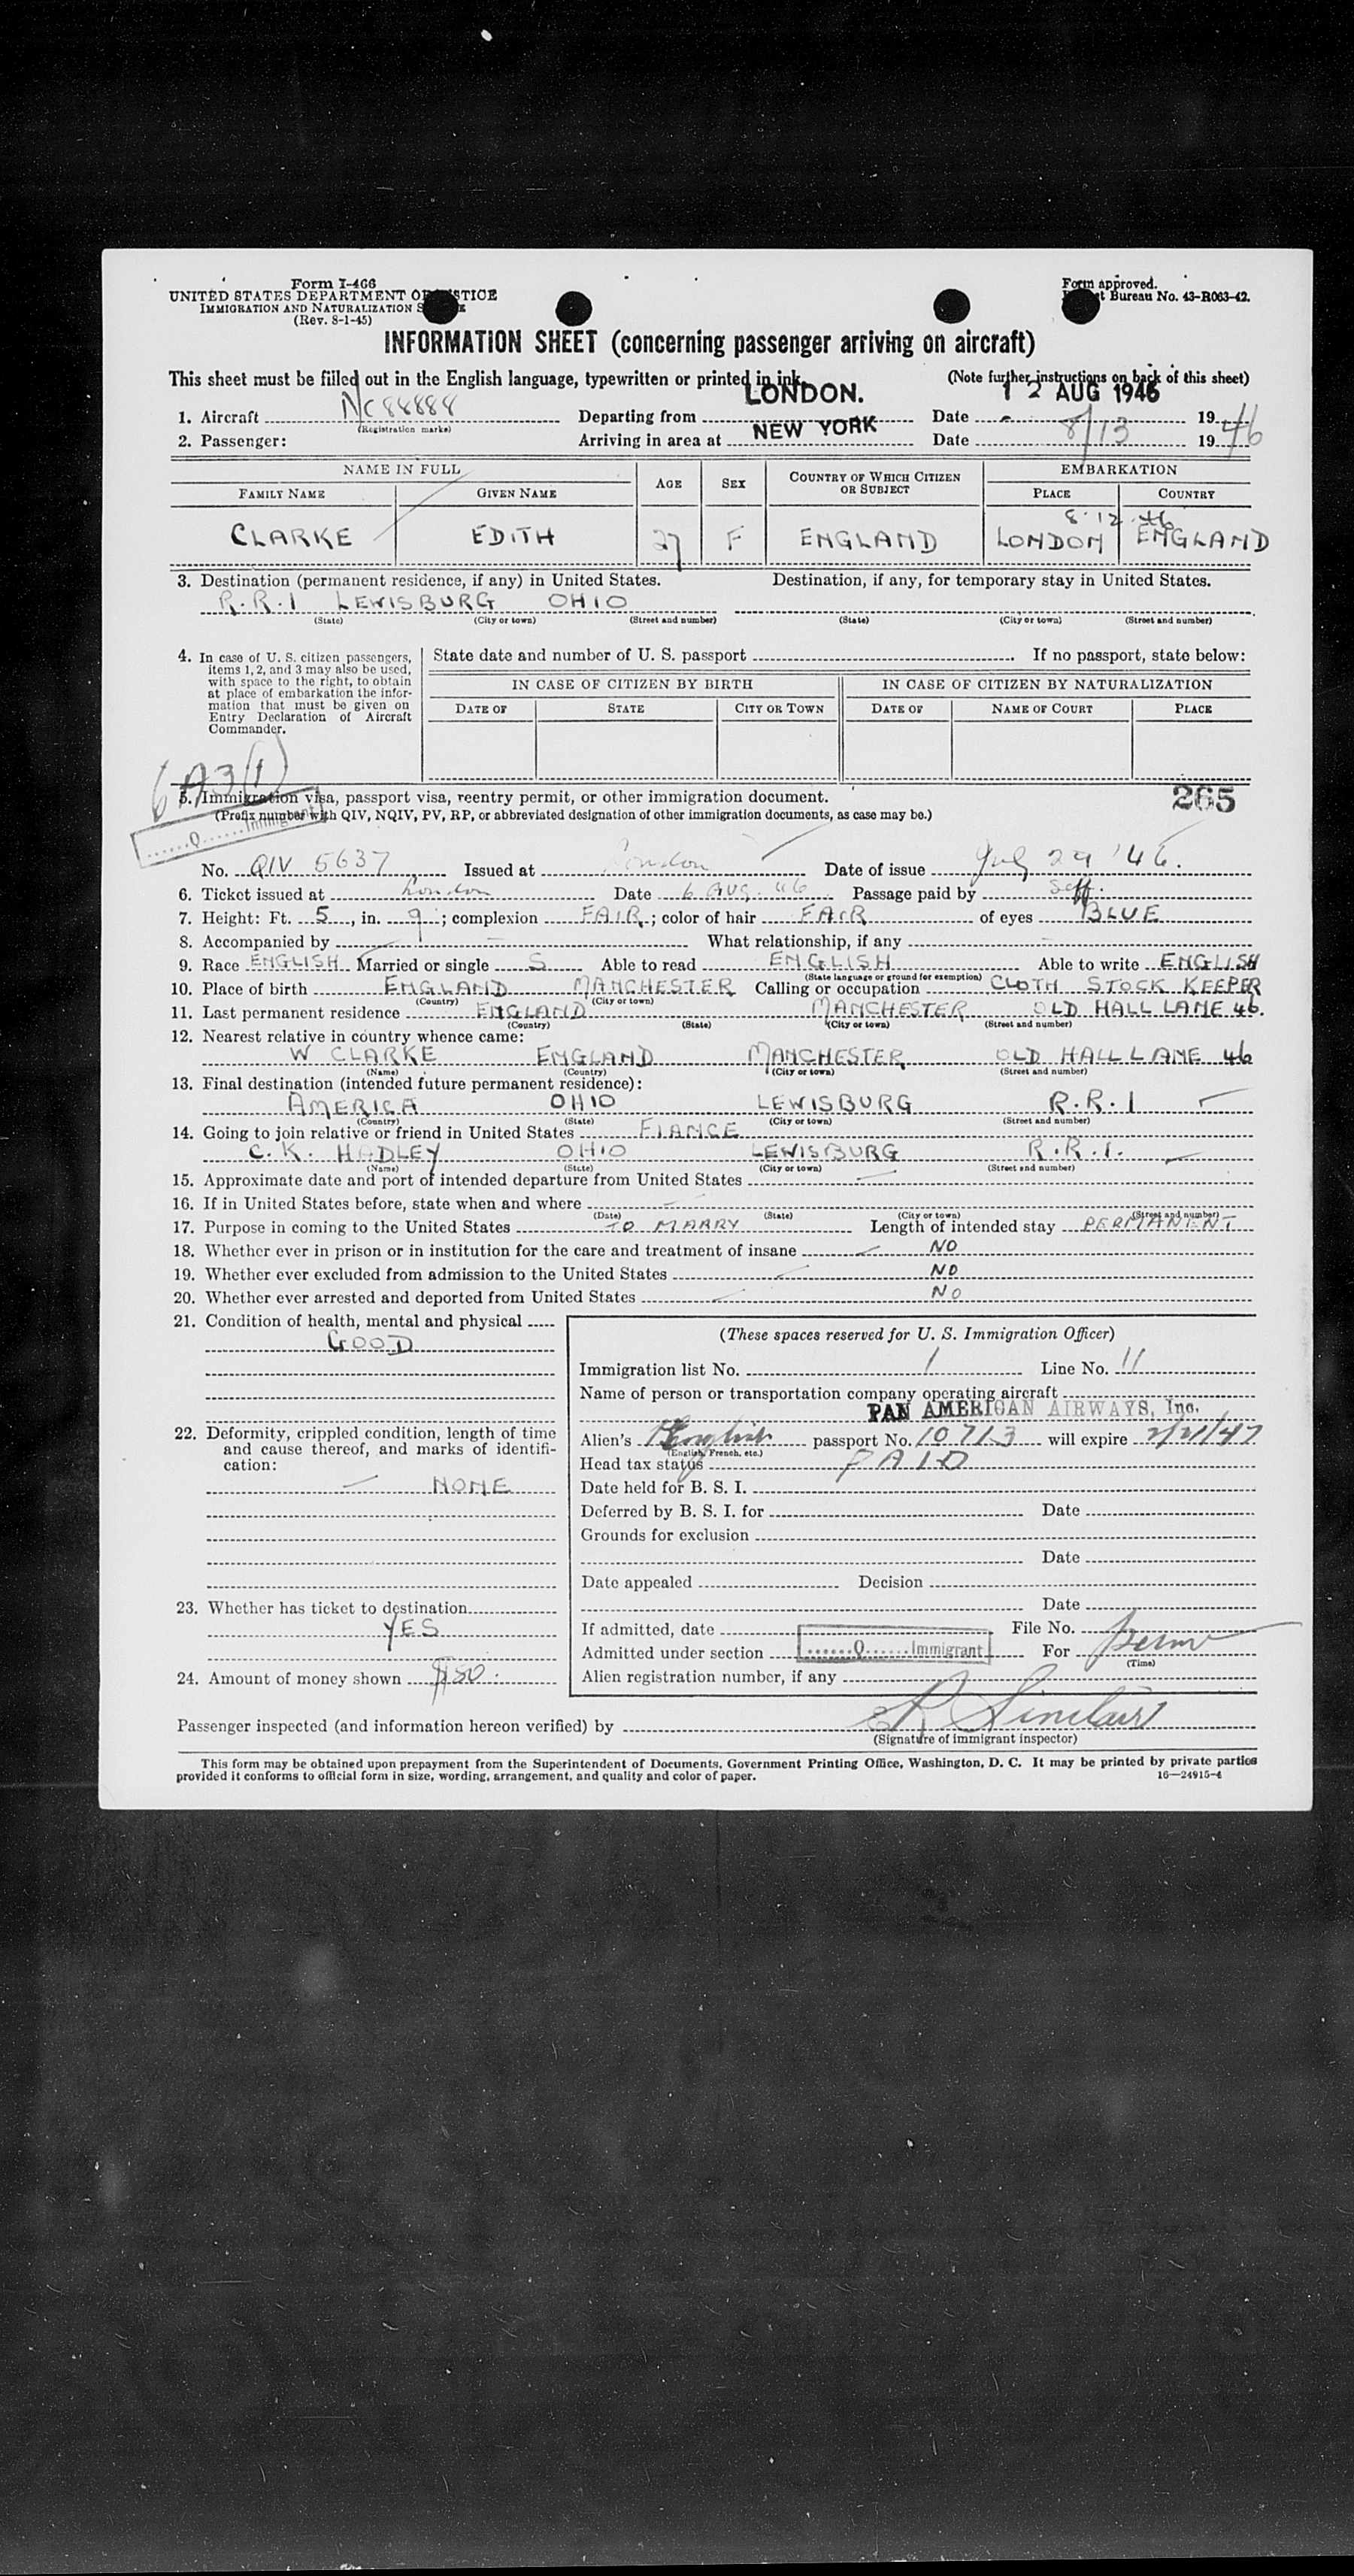 Form I-466
UNITED STATES DEPARTMENT OF JUSTICE
IMMIGRATION AND NATURALIZATION
(Rev. 8-1-45)
Form approved.
Bureau No. 43-R063-42.
INFORMATION SHEET (concerning passenger arriving on aircraft)
This sheet must be filled out in the English language, typewritten or printed in ink. (Note further instructions on back of this sheet)
1. Aircraft NC88888 Departing from LONDON. Date 12 AUG 1946 19
(Registration marks)
2. Passenger: Arriving in area at NEW YORK Date 8/13 1946
NAME IN FULL AGE SEX COUNTRY OF WHICH CITIZEN OR SUBJECT EMBARKATION
FAMILY NAME GIVEN NAME PLACE COUNTRY
8.12.46
CLARKE EDITH 27 F ENGLAND LONDON ENGLAND
3. Destination (permanent residence, if any) in United States. Destination, if any, for temporary stay in United States.
R.R.1 LEWISBURG OHIO
(State) (City or town) (Street and number) (State) (City or town) (Street and number)
4. In case of U. S. citizen passengers, items 1, 2, and 3 may also be used, with space to the right, to obtain at place of embarkation the information that must be given on Entry Declaration of Aircraft Commander.
State date and number of U. S. passport If no passport, state below:
IN CASE OF CITIZEN BY BIRTH IN CASE OF CITIZEN BY NATURALIZATION
DATE OF STATE CITY OR TOWN DATE OF NAME OF COURT PLACE
6A3(1)
5. Immigration visa, passport visa, reentry permit, or other immigration document. 265
(Prefix number with QIV, NQIV, PV, RP, or abbreviated designation of other immigration documents, as case may be.)
Q Immigrant
No. QIV 5637 Issued at London Date of issue July 29 '46.
6. Ticket issued at London Date 6 AUG. 46 Passage paid by Self.
7. Height: Ft. 5, in. 9; complexion FAIR; color of hair FAIR of eyes BLUE
8. Accompanied by – What relationship, if any –
9. Race ENGLISH Married or single S Able to read ENGLISH Able to write ENGLISH
(State language or ground for exemption)
10. Place of birth ENGLAND MANCHESTER Calling or occupation CLOTH STOCK KEEPER
(Country) (City or town)
11. Last permanent residence ENGLAND MANCHESTER OLD HALL LANE 46.
(Country) (State) (City or town) (Street and number)
12. Nearest relative in country whence came:
W CLARKE ENGLAND MANCHESTER OLD HALL LANE 46
(Name) (Country) (City or town) (Street and number)
13. Final destination (intended future permanent residence):
AMERICA OHIO LEWISBURG R.R.1
(Country) (State) (City or town) (Street and number)
14. Going to join relative or friend in United States FIANCE
C.K. HADLEY OHIO LEWISBURG R.R.1.
(Name) (State) (City or town) (Street and number)
15. Approximate date and port of intended departure from United States –
16. If in United States before, state when and where –
(Date) (State) (City or town) (Street and number)
17. Purpose in coming to the United States TO MARRY Length of intended stay PERMANENT
18. Whether ever in prison or in institution for the care and treatment of insane NO
19. Whether ever excluded from admission to the United States NO
20. Whether ever arrested and deported from United States NO
21. Condition of health, mental and physical
GOOD
22. Deformity, crippled condition, length of time and cause thereof, and marks of identification:
NONE
23. Whether has ticket to destination
YES
24. Amount of money shown $50.
(These spaces reserved for U. S. Immigration Officer)
Immigration list No. 1 Line No. 11
Name of person or transportation company operating aircraft
PAN AMERICAN AIRWAYS, Inc.
Alien's English passport No. 10713 will expire 2/21/47
(English, French, etc.)
Head tax status PAID
Date held for B. S. I.
Deferred by B. S. I. for Date
Grounds for exclusion
Date
Date appealed Decision
Date
If admitted, date File No.
Admitted under section Q Immigrant For Perm
(Time)
Alien registration number, if any
Passenger inspected (and information hereon verified) by R Sinclair
(Signature of immigrant inspector)
This form may be obtained upon prepayment from the Superintendent of Documents, Government Printing Office, Washington, D. C. It may be printed by private parties
provided it conforms to official form in size, wording, arrangement, and quality and color of paper. 16—24915-4